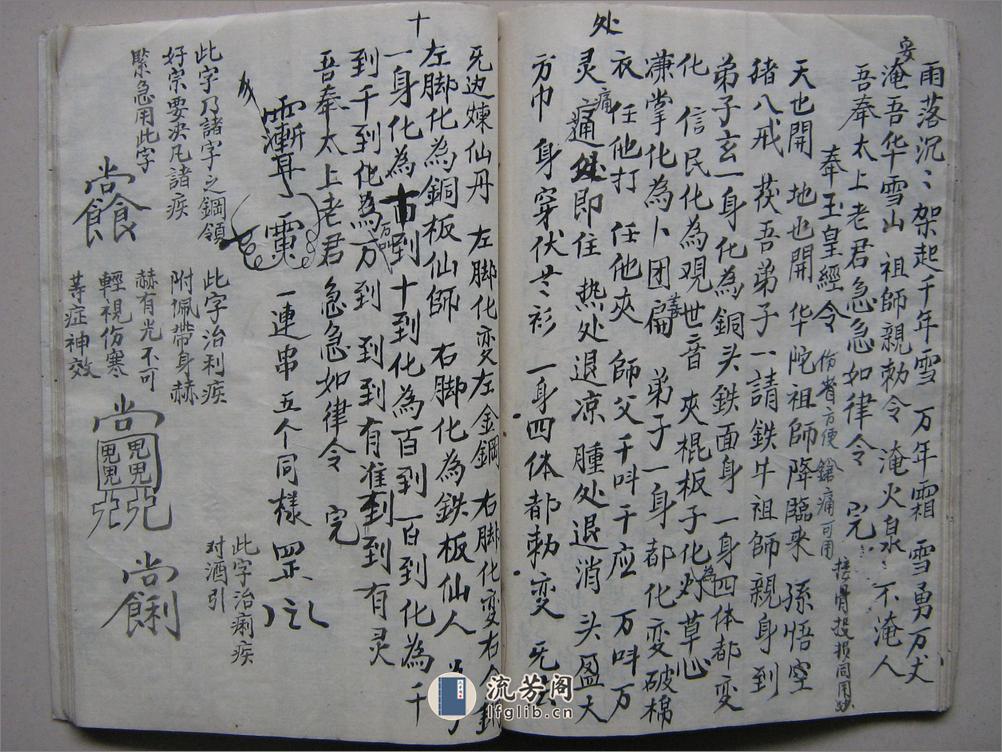 雨落沉沉架起千年雪 万年霜 雪勇万丈
淹吾华雪山 祖師親勅令 淹火泉 不淹人
吾奉太上老君急急如律令 完
奉玉皇經令 伤者方便 痛可用 接骨投損同用妙
天也開 地也開 华陀祖師降臨来 孫悟空
猪八戒 茯吾弟子一請鉄牛祖師親身到
弟子玄一身化為銅头鉄面身 一身四体都变
化 信民化為观世音 夾棍板子化為灯草心
潇掌化為卜团扁 弟子一身都化变破棉
衣 任他打 任他夾 師父千呌千应 万呌万
灵 痛处即住 热处退凉 腫处退消 头盔大
方巾 身穿伏 衫 一身四体都勅变
处
十
左脚化变左金鋼 右脚化变右金鋼
左脚化為銅板仙師 右脚化為鉄板仙人
一身化為 十到化為百到 百到化為千
到 千到化為万到 到到有准 到到有灵
吾奉太上老君急急如律令 完
一連串五个同樣
此字乃諸字之鋼領
好字要决凡諸疾
緊急用此字
此字治利疾
附佩帶身赫
赫有光不可
輕視伤寒
䓁症神效
此字治痢疾
对酒引
流芳阁
lfglib.cn